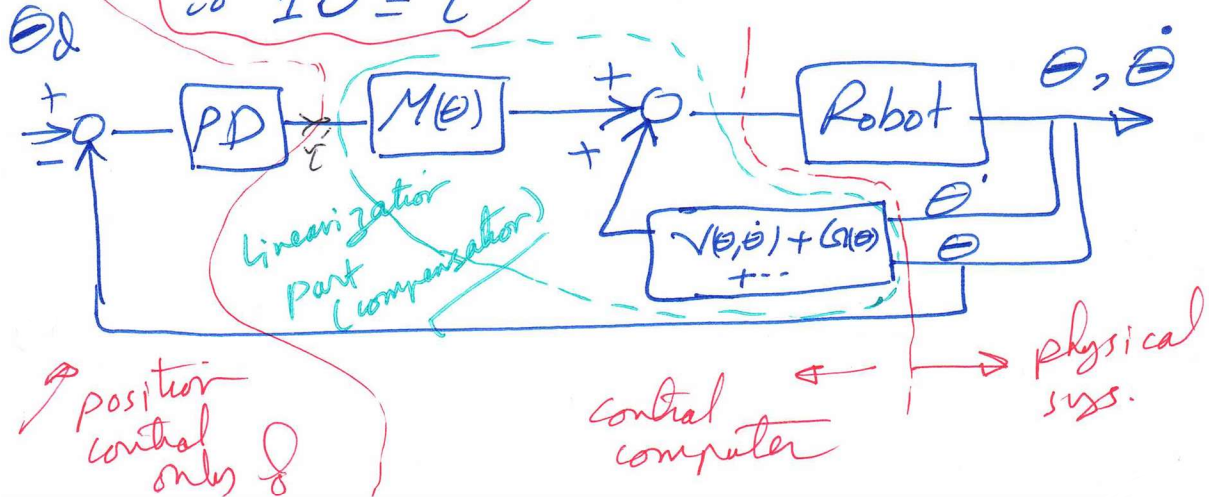 Θd
+
−
PD
τ
M(Θ)
+
+
Robot
Θ, Θ̇
V(Θ,Θ̇) + G(Θ)
+...
Θ̇
Θ
Linearization
part
(compensation)
position
control
only
control
computer
physical
sys.